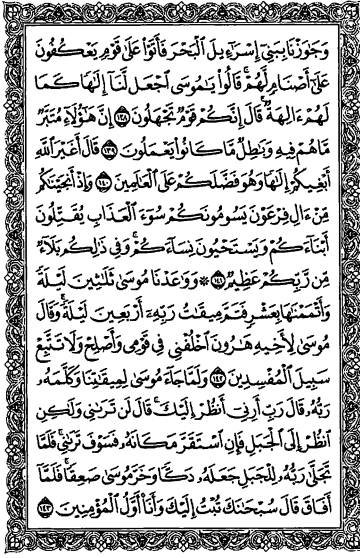 وَجَٰوَزْنَا بِبَنِىٓ إِسْرَٰٓءِيلَ ٱلْبَحْرَ فَأَتَوْا۟ عَلَىٰ قَوْمٍ يَعْكُفُونَ
عَلَىٰٓ أَصْنَامٍ لَّهُمْ ۚ قَالُوا۟ يَٰمُوسَى ٱجْعَل لَّنَآ إِلَٰهًا كَمَا
لَهُمْ ءَالِهَةٌ ۚ قَالَ إِنَّكُمْ قَوْمٌ تَجْهَلُونَ ١٣٨ إِنَّ هَٰٓؤُلَآءِ مُتَبَّرٌ
مَّا هُمْ فِيهِ وَبَٰطِلٌ مَّا كَانُوا۟ يَعْمَلُونَ ١٣٩ قَالَ أَغَيْرَ ٱللَّهِ
أَبْغِيكُمْ إِلَٰهًا وَهُوَ فَضَّلَكُمْ عَلَى ٱلْعَٰلَمِينَ ١٤٠ وَإِذْ أَنجَيْنَٰكُم
مِّنْ ءَالِ فِرْعَوْنَ يَسُومُونَكُمْ سُوٓءَ ٱلْعَذَابِ ۖ يُقَتِّلُونَ
أَبْنَآءَكُمْ وَيَسْتَحْيُونَ نِسَآءَكُمْ ۚ وَفِى ذَٰلِكُم بَلَآءٌ
مِّن رَّبِّكُمْ عَظِيمٌ ١٤١ ۞ وَوَٰعَدْنَا مُوسَىٰ ثَلَٰثِينَ لَيْلَةً
وَأَتْمَمْنَٰهَا بِعَشْرٍ فَتَمَّ مِيقَٰتُ رَبِّهِۦٓ أَرْبَعِينَ لَيْلَةً ۚ وَقَالَ
مُوسَىٰ لِأَخِيهِ هَٰرُونَ ٱخْلُفْنِى فِى قَوْمِى وَأَصْلِحْ وَلَا تَتَّبِعْ
سَبِيلَ ٱلْمُفْسِدِينَ ١٤٢ وَلَمَّا جَآءَ مُوسَىٰ لِمِيقَٰتِنَا وَكَلَّمَهُۥ
رَبُّهُۥ قَالَ رَبِّ أَرِنِىٓ أَنظُرْ إِلَيْكَ ۚ قَالَ لَن تَرَىٰنِى وَلَٰكِنِ
ٱنظُرْ إِلَى ٱلْجَبَلِ فَإِنِ ٱسْتَقَرَّ مَكَانَهُۥ فَسَوْفَ تَرَىٰنِى ۚ فَلَمَّا
تَجَلَّىٰ رَبُّهُۥ لِلْجَبَلِ جَعَلَهُۥ دَكًّا وَخَرَّ مُوسَىٰ صَعِقًا ۚ فَلَمَّآ
أَفَاقَ قَالَ سُبْحَٰنَكَ تُبْتُ إِلَيْكَ وَأَنَا۠ أَوَّلُ ٱلْمُؤْمِنِينَ ١٤٣